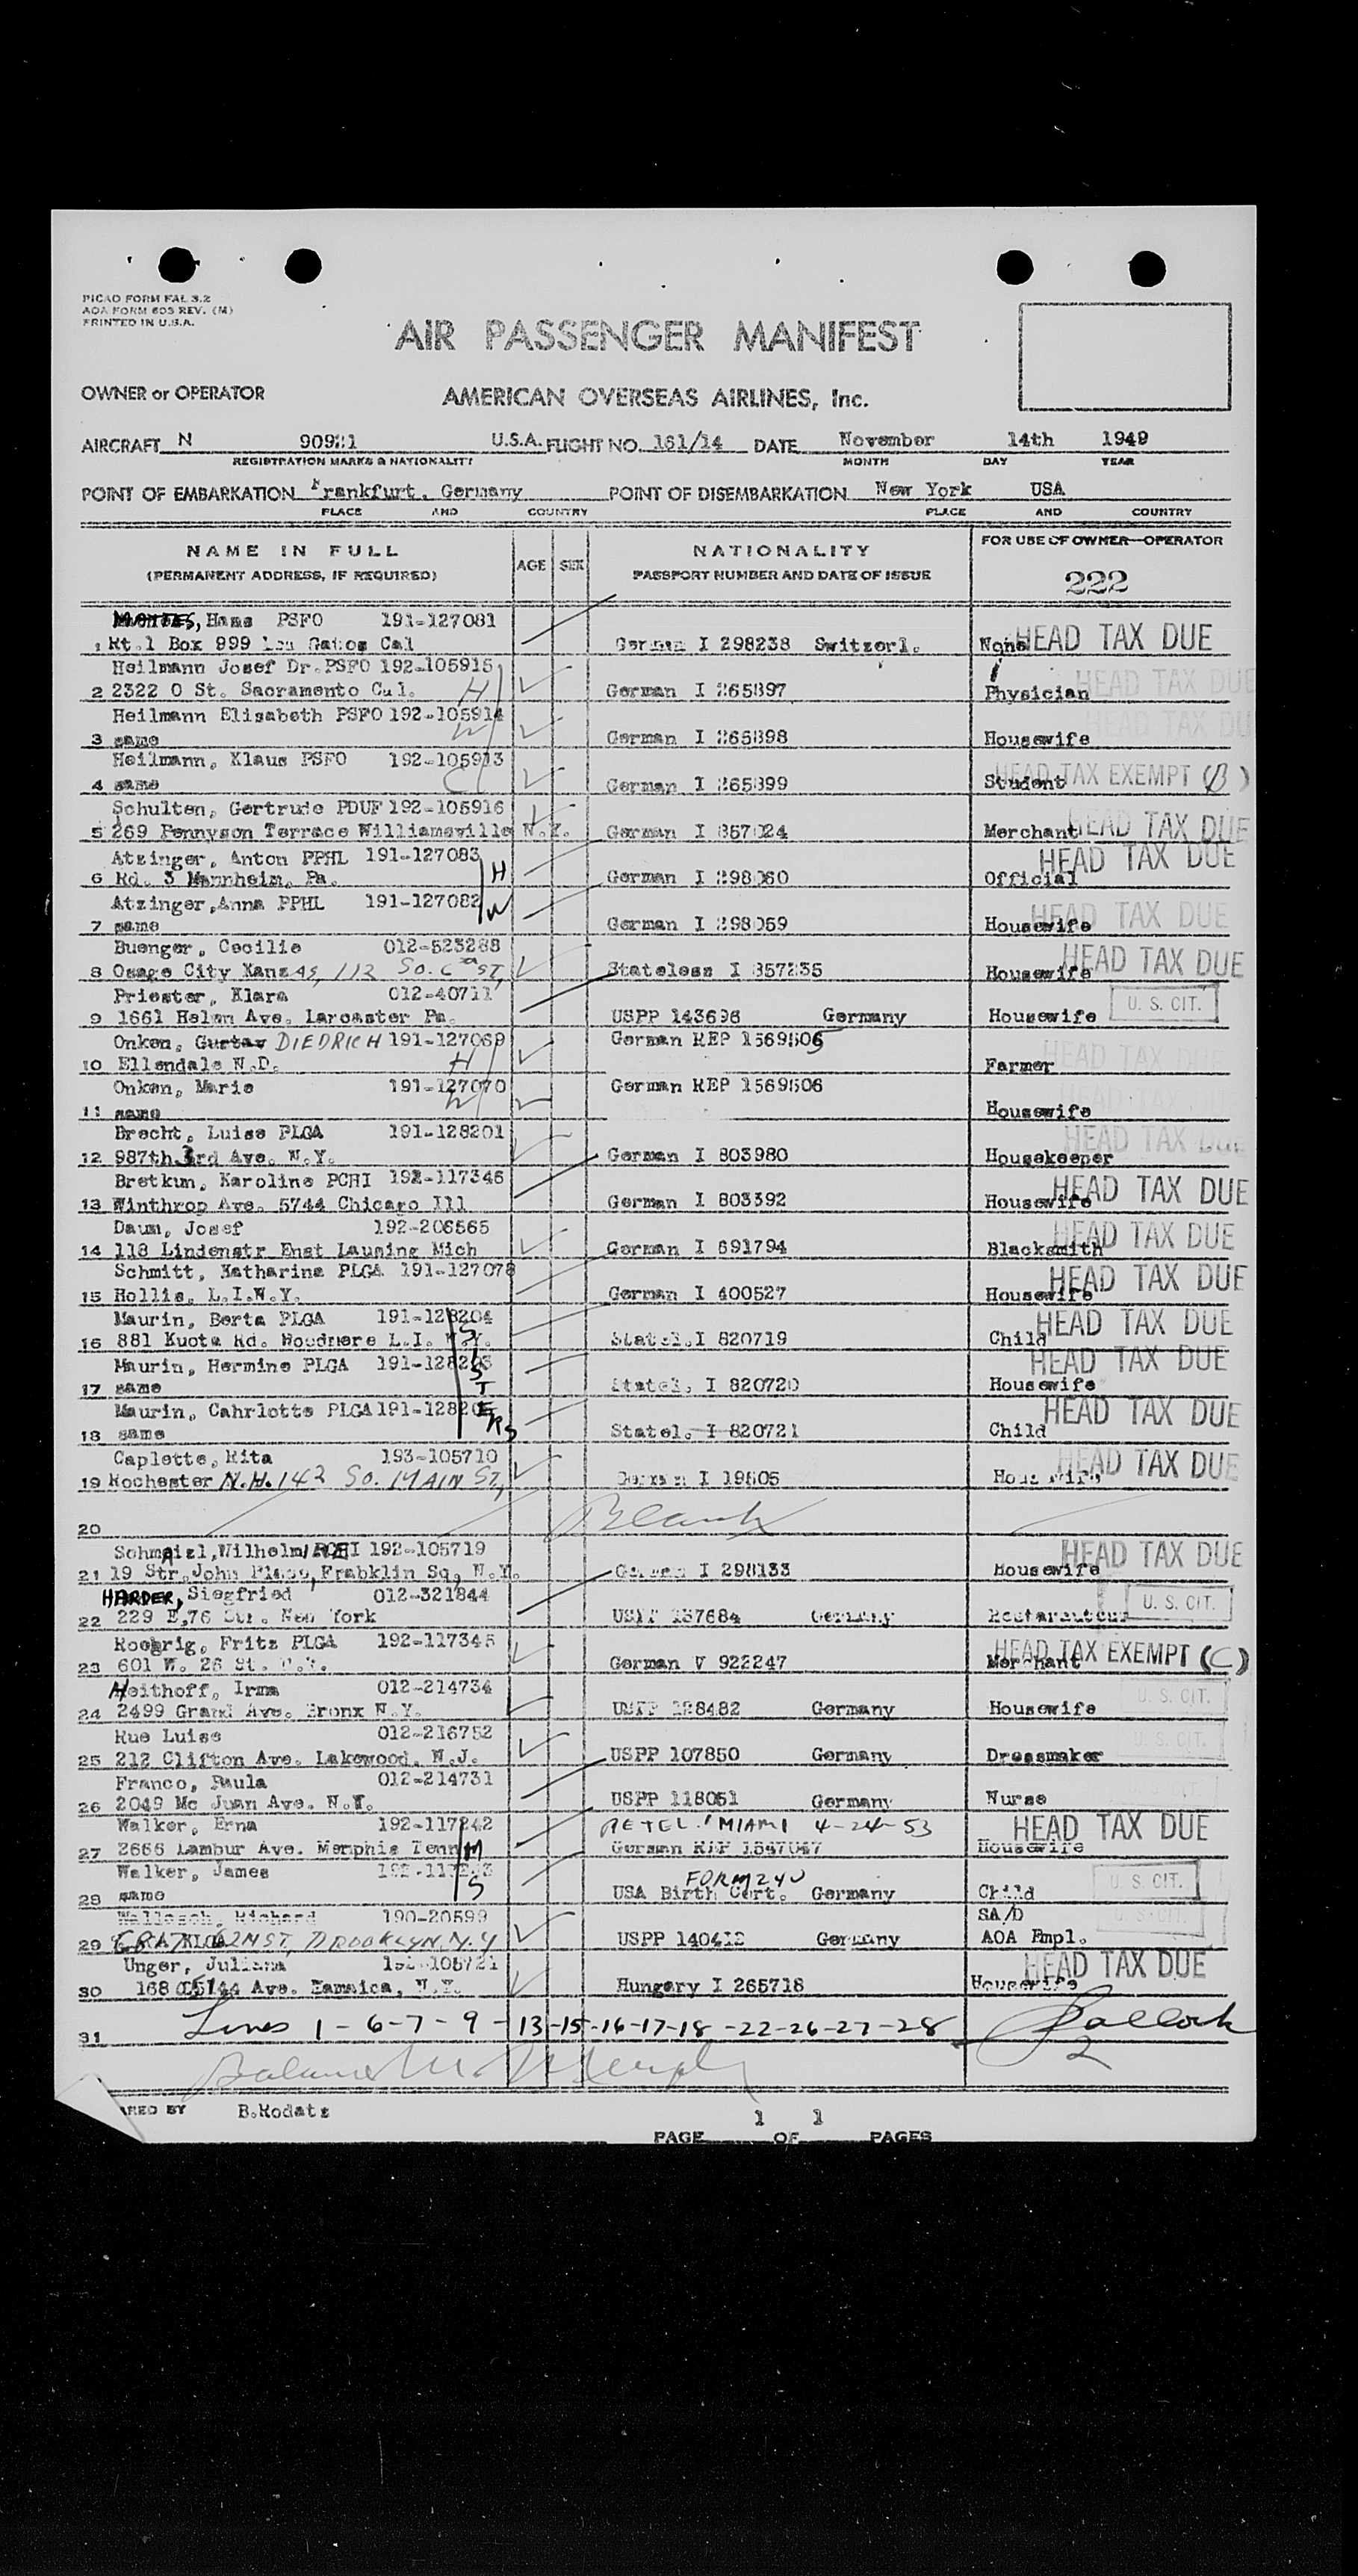 PICAO FORM FAL 3.2
AOA FORM 603 REV. (M)
PRINTED IN U.S.A.
AIR PASSENGER MANIFEST
OWNER or OPERATOR AMERICAN OVERSEAS AIRLINES, Inc.
AIRCRAFT N 90921 U.S.A. FLIGHT NO. 161/14 DATE November 14th 1949
REGISTRATION MARKS & NATIONALITY MONTH DAY YEAR
POINT OF EMBARKATION Frankfurt, Germany POINT OF DISEMBARKATION New York USA
PLACE AND COUNTRY PLACE AND COUNTRY
NAME IN FULL AGE SEX NATIONALITY FOR USE OF OWNER—OPERATOR
(PERMANENT ADDRESS, IF REQUIRED) PASSPORT NUMBER AND DATE OF ISSUE 222
Hans PSFO 191-127081
1 Rt.1 Box 999 Los Gatos Cal German I 298238 Switzerl. None HEAD TAX DUE
Heilmann Josef Dr.PSFO 192-105915
2 2322 O St. Sacramento Cal. H German I 265897 Physician HEAD TAX DUE
Heilmann Elisabeth PSFO 192-105914
3 same W German I 265898 Housewife HEAD TAX DU
Heilmann, Klaus PSFO 192-105913
4 same C German I 265899 Student HEAD TAX EXEMPT (B)
Schulten, Gertrude PDUF 192-105916
5 269 Pennyson Terrace Williamsville N.Y. German I 857024 Merchant HEAD TAX DUE
Atzinger, Anton PPHL 191-127083
6 Rd. 3 Mannheim, Pa. H German I 298060 Official HEAD TAX DUE
Atzinger,Anna PPHL 191-127082
7 same W German I 298059 Housewife HEAD TAX DUE
Buenger, Cecilie 012-523288
8 Osage City Kansas, 112 So. C ST, Stateless I 857235 Housewife HEAD TAX DUE
Priester, Klara 012-40711
9 1661 Helen Ave. Larcaster Pa. USPP 143696 Germany Housewife U. S. CIT.
Onken, Gustav DIEDRICH 191-127069 German REP 1569505
10 Ellendale N.D. H Farmer HEAD TAX DUE
Onken, Marie 191-127070 German REP 1569506
11 same W Housewife
Brecht, Luise PLGA 191-128201
12 987th 3rd Ave. N.Y. German I 803980 Housekeeper HEAD TAX DUE
Bretkun, Karoline PCHI 192-117346
13 Winthrop Ave. 5744 Chicago Ill German I 803392 Housewife HEAD TAX DUE
Daum, Josef 192-206565
14 118 Lindenstr East Lausing Mich German I 691794 Blacksmith HEAD TAX DUE
Schmitt, Katharina PLGA 191-127078
15 Hollis, L.I.N.Y. German I 400527 Housewife HEAD TAX DUE
Maurin, Berta PLGA 191-128204
16 881 Kuota Rd. Woodmere L.I. N.Y. Statel.I 820719 Child HEAD TAX DUE
Maurin, Hermine PLGA 191-128203
17 same Statel, I 820720 Housewife HEAD TAX DUE
Maurin, Cahrlotte PLGA 191-12820 SISTERS
18 same Statel. I 820721 Child HEAD TAX DUE
Caplette, Rita 193-105710
19 Rochester N.H. 142 So. MAIN ST, German I 19605 Housewife HEAD TAX DUE
20 Blank
Schmaizl,Wilhelm 192-105719
21 19 Str.John Place, Frabklin Sq, N.Y. German I 298133 Housewife HEAD TAX DUE
HARDER, Siegfried 012-321844
22 229 E.76 Str. New York USPP 237684 Germany Restaurateur U. S. CIT.
Roehrig, Fritz PLGA 192-117345
23 601 W. 26 St. N.Y. German V 922247 Merchant HEAD TAX EXEMPT (C)
Heithoff, Irma 012-214734
24 2499 Grand Ave. Bronx N.Y. USPP 128482 Germany Housewife U. S. CIT.
Rue Luise 012-216752
25 212 Clifton Ave. Lakewood, N.J. USPP 107850 Germany Dressmaker U. S. CIT.
Franco, Paula 012-214731
26 2049 Mc Juan Ave. N.Y. USPP 118051 Germany Nurse
Walker, Erna 192-117242 RETEL. MIAMI 4-24-53
27 2666 Lambur Ave. Memphis Tenn M German REP 1547047 Housewife HEAD TAX DUE
Walker, James FORM 240
28 same S USA Birth Cert. Germany Child U. S. CIT.
Wallasch, Richard 190-20599 SA/D
29 ST, BROOKLYN, N.Y USPP 140412 Germany AOA Empl. U. S. CIT.
Unger, Juliana 192-105721
30 168 Ave. Jamaica, N.Y. Hungary I 265718 Housewife HEAD TAX DUE
31 Lines 1-6-7-9-13-15-16-17-18-22-26-27-28
2
ARED BY B.Kodatz
PAGE 1 OF 1 PAGES